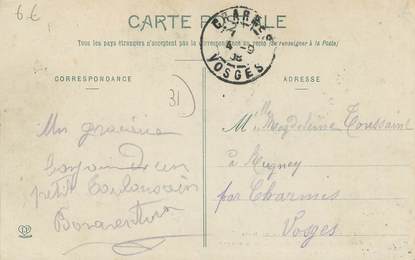 6.€
CARTE POSTALE
Tous les pays étrangers n'acceptent pas la correspondance au recto (Se renseigner à la Poste)
CHARMES
VOSGES
CORRESPONDANCE
ADRESSE
31
Un gracieux
petit Toulousain
Bonaventure
Mlle Magdeleine Toussaint
à Rugney
par Charmes
Vosges